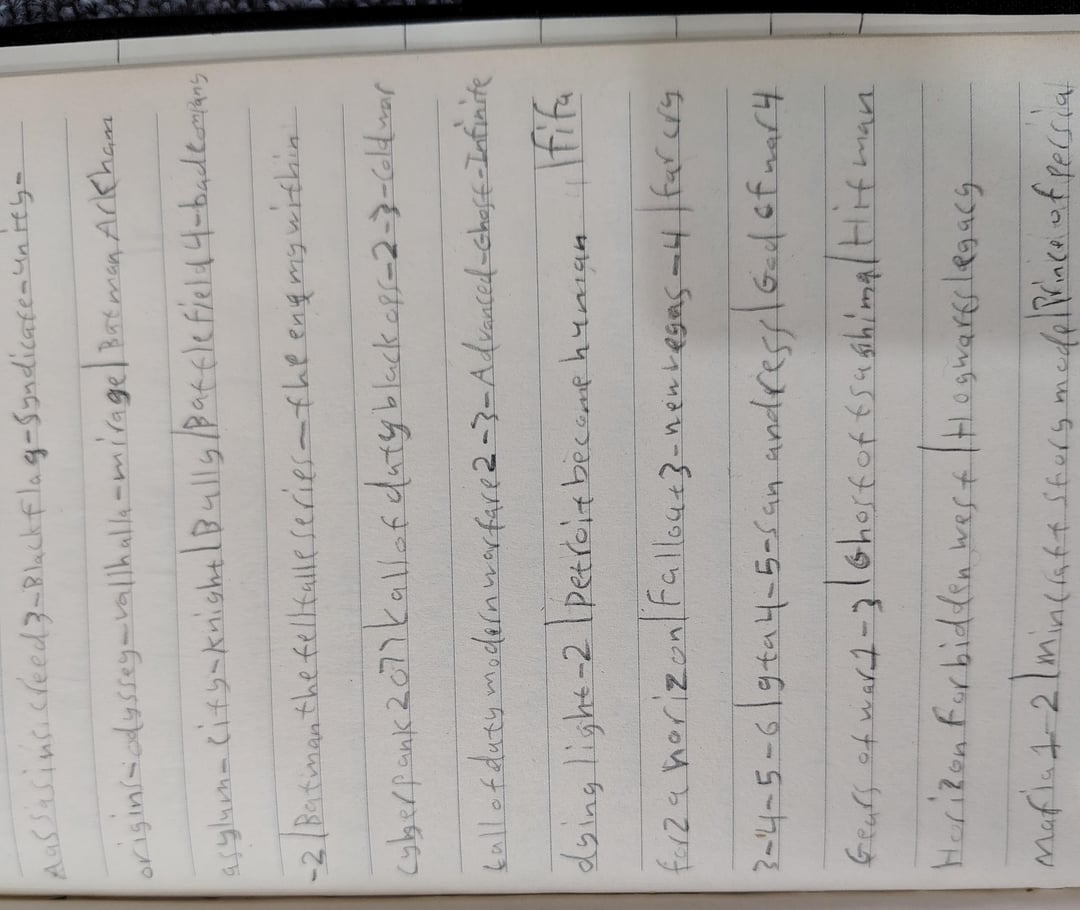 Aassasinscreed3-Blackflag-Syndicate-unity-
origins-odyssey-vallhalla-mirage|Batman Arkham
asylum-city-knight|Bully|Battlefield4-badcompany
-2|Batmanthetelltalleseries-the enemy within
Cyberpank2077|kallof duty black ops-2-3-coldwar
kallofdutymodernwarfare2-3-Advanced-Ghost-Infinite
dying light-2|Detroitbecomehuman |fifa
forza horizon|Fallout3-newvegas-4|farcry
3-4-5-6|gta4-5-san andress|God of war4
Gears of war1-3|Ghost of tsushima|Hitman
Horizon forbidden west|Hogwarts legacy
Mafia1-2|mincraft story mode|Prince of persia|